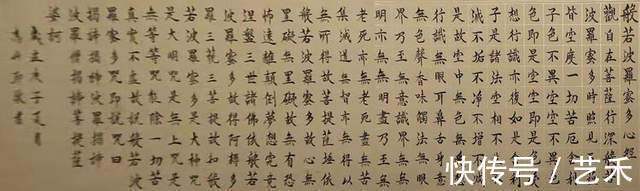 般若波羅蜜多心經
觀自在菩薩行深般若
波羅蜜多時照見五蘊
皆空度一切苦厄舍利
子色不異空空不異色
色即是空空即是色受
想行識亦復如是舍利
子是諸法空相不生不
滅不垢不淨不增不減
是故空中無色無受想
行識無眼耳鼻舌身意
無色聲香味觸法無眼
界乃至無意識界無無
明亦無無明盡乃至無
老死亦無老死盡無苦
集滅道無智亦無得以
無所得故菩提薩埵依
般若波羅蜜多故心無
罣礙無罣礙故無有恐
怖遠離顛倒夢想究竟
涅槃三世諸佛依般若
波羅蜜多故得阿耨多
羅三藐三菩提故知般
若波羅蜜多是大神咒
是大明咒是無上咒是
無等等咒能除一切苦
真實不虛故說般若波
羅蜜多咒即說咒曰
揭諦揭諦波羅揭諦
波羅僧揭諦菩提薩
婆訶
庚子夏月
敬書
快传号/艺禾